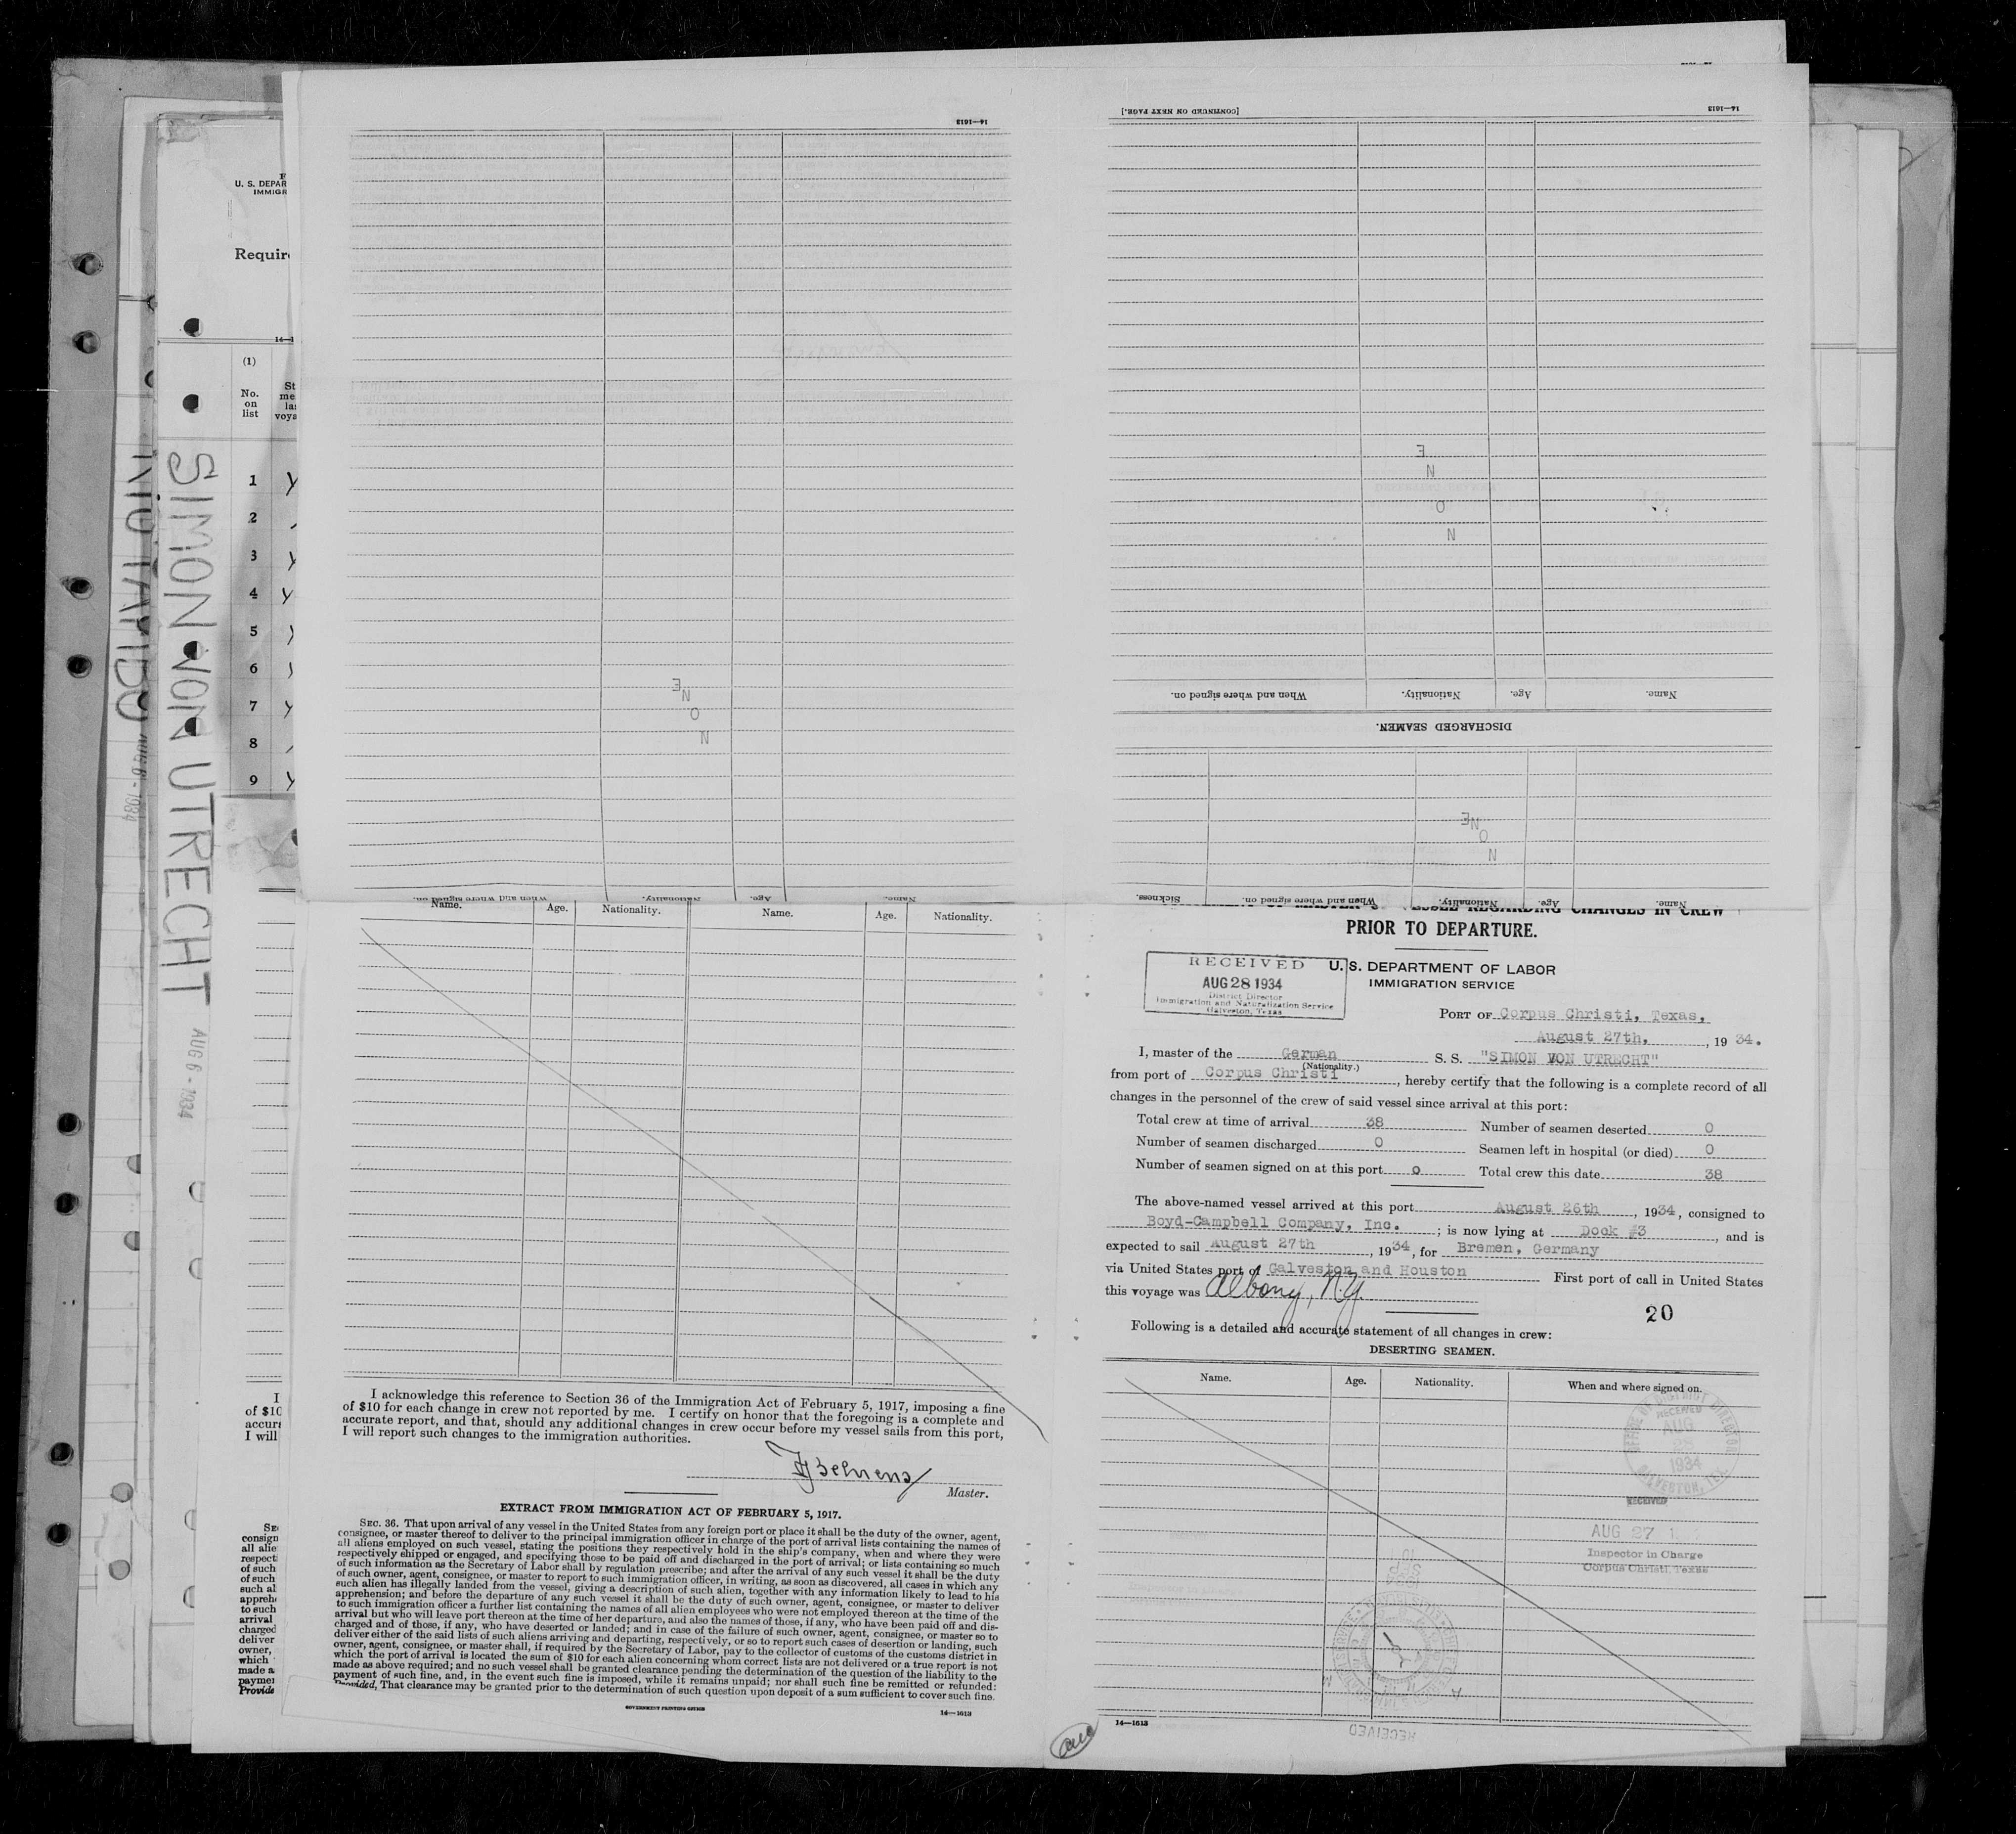 14—1613
[CONTINUED ON NEXT PAGE.]
14—1613
U. S. DEPAR
IMMIGR
Require
(1)
No.
on
list
St
me
las
voya
1
2
3
4
5
6
7
8
9
SIMON VON UTRECHT
AUG 6 - 1934
AUG 6 - 1934
N
O
N
E
Name.
Age.
Nationality.
When and where signed on.
N
O
N
E
When and where signed on.
Nationality.
Age.
Name.
DISCHARGED SEAMEN.
N
O
N
E
Sickness.
When and where signed on.
Nationality.
Age.
Name.
Name.
Age.
Nationality.
Name.
Age.
Nationality.
I acknowledge this reference to Section 36 of the Immigration Act of February 5, 1917, imposing a fine
of $10 for each change in crew not reported by me. I certify on honor that the foregoing is a complete and
accurate report, and that, should any additional changes in crew occur before my vessel sails from this port,
I will report such changes to the immigration authorities.
Behrens
Master.
EXTRACT FROM IMMIGRATION ACT OF FEBRUARY 5, 1917.
SEC. 36. That upon arrival of any vessel in the United States from any foreign port or place it shall be the duty of the owner, agent,
consignee, or master thereof to deliver to the principal immigration officer in charge of the port of arrival lists containing the names of
all aliens employed on such vessel, stating the positions they respectively hold in the ship's company, when and where they were
respectively shipped or engaged, and specifying those to be paid off and discharged in the port of arrival; or lists containing so much
of such information as the Secretary of Labor shall by regulation prescribe; and after the arrival of any such vessel it shall be the duty
of such owner, agent, consignee, or master to report to such immigration officer, in writing, as soon as discovered, all cases in which any
such alien has illegally landed from the vessel, giving a description of such alien, together with any information likely to lead to his
apprehension; and before the departure of any such vessel it shall be the duty of such owner, agent, consignee, or master to deliver
to such immigration officer a further list containing the names of all alien employees who were not employed thereon at the time of the
arrival but who will leave port thereon at the time of her departure, and also the names of those, if any, who have been paid off and dis-
charged and of those, if any, who have deserted or landed; and in case of the failure of such owner, agent, consignee, or master so to
deliver either of the said lists of such aliens arriving and departing, respectively, or so to report such cases of desertion or landing, such
owner, agent, consignee, or master shall, if required by the Secretary of Labor, pay to the collector of customs of the customs district in
which the port of arrival is located the sum of $10 for each alien concerning whom correct lists are not delivered or a true report is not
made as above required; and no such vessel shall be granted clearance pending the determination of the question of the liability to the
payment of such fine, and, in the event such fine is imposed, while it remains unpaid; nor shall such fine be remitted or refunded:
Provided, That clearance may be granted prior to the determination of such question upon deposit of a sum sufficient to cover such fine.
GOVERNMENT PRINTING OFFICE
14—1613
I
of $10
accur
I will
SE
consign
all alie
respecti
of such
of such
such al
apprehe
to such
arrival
charged
deliver
owner,
which
made a
paymer
Provide
REGARDING CHANGES IN CREW
PRIOR TO DEPARTURE.
RECEIVED
AUG 28 1934
District Director
Immigration and Naturalization Service
Galveston, Texas
U. S. DEPARTMENT OF LABOR
IMMIGRATION SERVICE
PORT OF Corpus Christi, Texas,
August 27th, , 19 34.
I, master of the German S. S. "SIMON VON UTRECHT"
(Nationality.)
from port of Corpus Christi , hereby certify that the following is a complete record of all
changes in the personnel of the crew of said vessel since arrival at this port:
Total crew at time of arrival 38 Number of seamen deserted 0
Number of seamen discharged 0 Seamen left in hospital (or died) 0
Number of seamen signed on at this port o Total crew this date 38
The above-named vessel arrived at this port August 26th , 1934, consigned to
Boyd-Campbell Company, Inc. ; is now lying at Dock #3 , and is
expected to sail August 27th , 1934, for Bremen, Germany
via United States port of Galveston and Houston First port of call in United States
this voyage was Albany, N.Y.
20
Following is a detailed and accurate statement of all changes in crew:
DESERTING SEAMEN.
Name.
Age.
Nationality.
When and where signed on.
OFFICE OF DISTRICT DIRECTOR
RECEIVED
AUG
1934
GALVESTON, TEX.
RECEIVED
AUG 27
Inspector in Charge
Corpus Christi, Texas
14—1613
RECEIVED